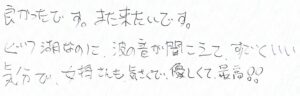 良かったです。また来たいです。
どいう湖なのに、波の音が聞こえて、すごくいい
気分で、女将さんも気さくで、優しくて、最高!!